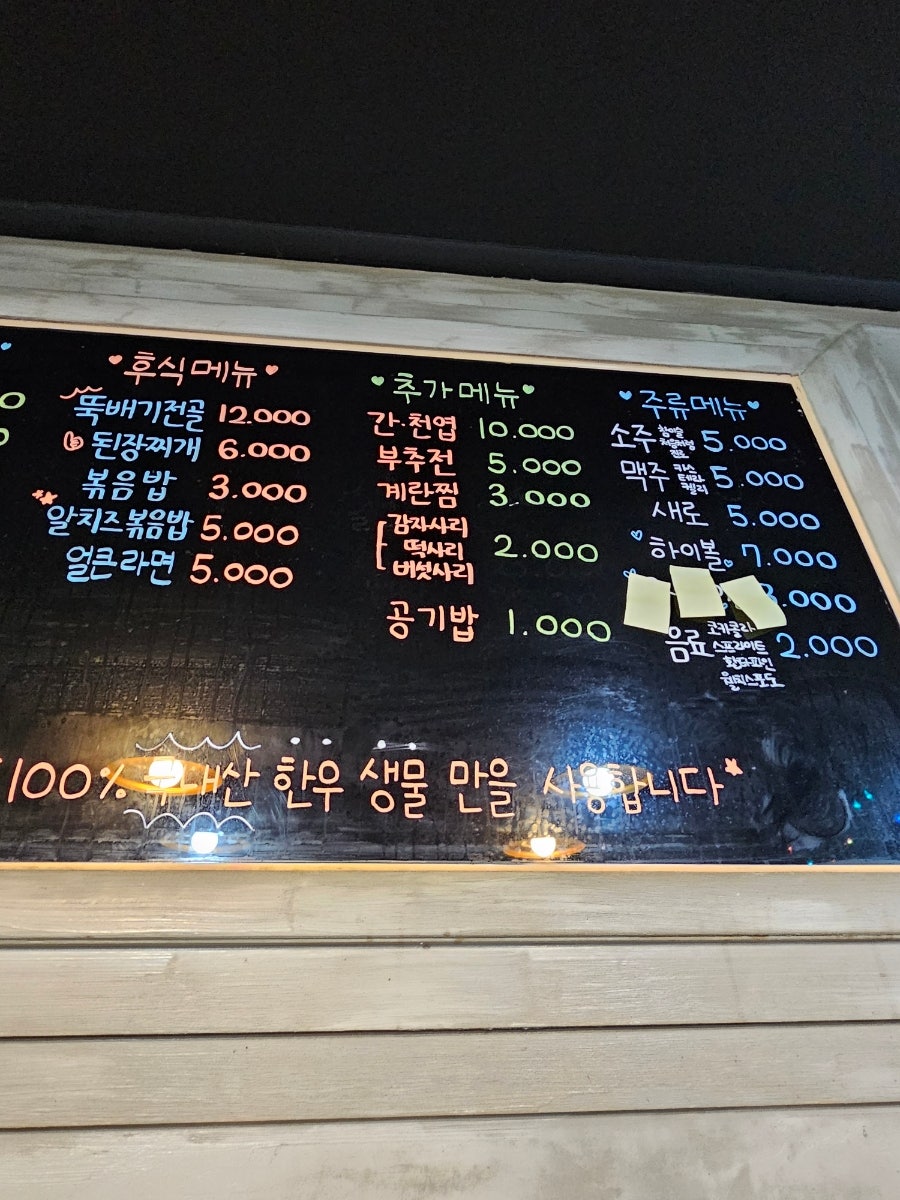 후식메뉴
뚝배기전골 12.000
된장찌개 6.000
볶음밥 3.000
알치즈볶음밥 5.000
얼큰라면 5.000
추가메뉴
간·천엽 10.000
부추전 5.000
계란찜 3.000
감자사리
떡사리 2.000
버섯사리
공기밥 1.000
주류메뉴
소주 참이슬 처음처럼 진로 5.000
맥주 카스 테라 켈리 5.000
새로 5.000
하이볼 7.000
.000
음료 코카콜라 스프라이트 환타파인 웰치스포도 2.000
100% 국내산 한우 생물 만을 사용합니다